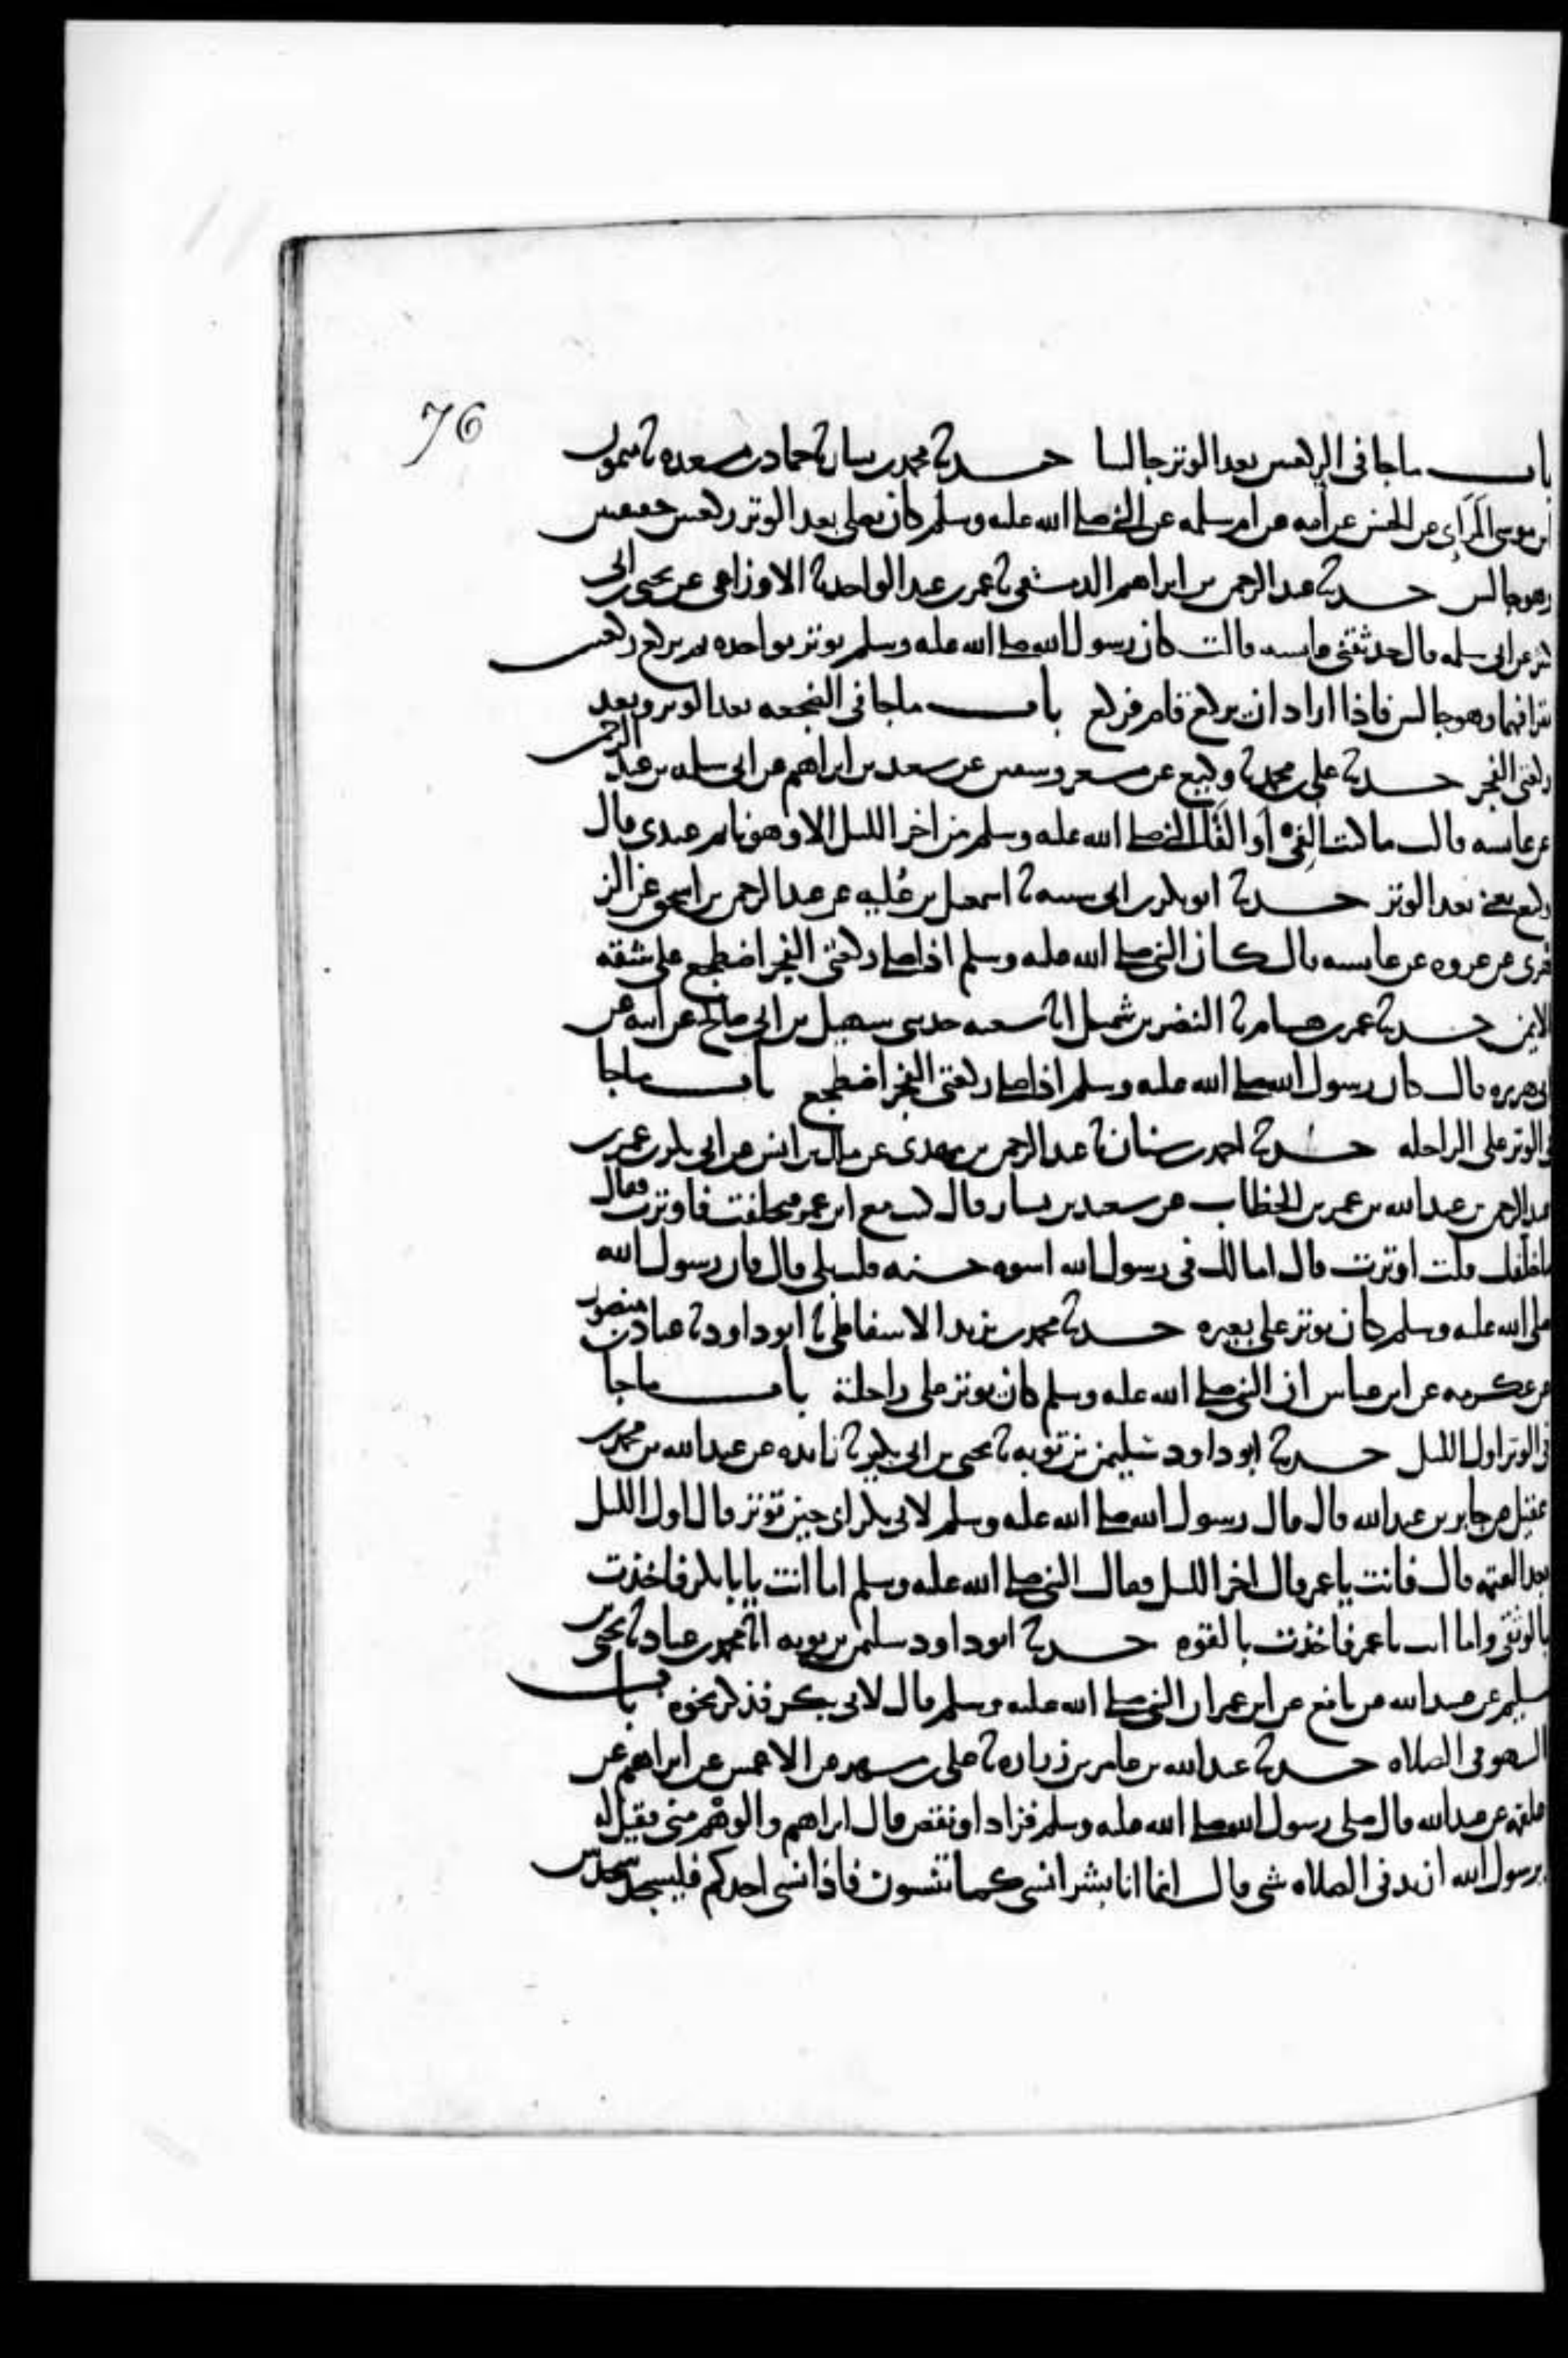 76
باب ماجا فى الركعتين بعد الوتر جالسا حدثنا محمد بن بشار ثنا حماد بن مسعده ثنا ميمون
ابن موسى المَرَاى عن الحسن عن امه عن ام سلمه عن النبى صلى الله عليه وسلم كان يصلى بعد الوتر ركعتين خفيفتين
وهو جالس حدثنا عبد الرحمن بن ابراهيم الدمشقى ثنا عمر بن عبد الواحد ثنا الاوزاعى عن يحيى بن ابى
كثير عن ابى سلمه قال حدثتنى عايشه قالت كان رسول الله صلى الله عليه وسلم يوتر بواحده ثم يركع ركعتين
يقرا فيهما وهو جالس فاذا اراد ان يركع قام فركع باب ماجا فى الضجعه بعد الوتر وبعد
ركعتى الفجر حدثنا على بن محمد ثنا وكيع عن مسعر وسفين عن سعد بن ابراهيم عن ابى سلمه بن عبد الرحمن
عن عايشه قالت ما كنت الفى او القى النبى صلى الله عليه وسلم من اخر الليل الا وهو نايم عندى قال
وكيع يعنى بعد الوتر حدثنا ابو بكر بن ابى شيبه ثنا اسمعيل بن عُليه عن عبد الرحمن بن اسحق عن الز
هرى عن عروه عن عايشه قال كان النبى صلى الله عليه وسلم اذا صلى ركعتى الفجر اضطجع على شقه
الايمن حدثنا عمر بن هشام ثنا النضر بن شميل انا شعبه حدثنى سهيل بن ابى صالح عن ابيه عن
ابى هريره قال كان رسول الله صلى الله عليه وسلم اذا صلى ركعتى الفجر اضطجع باب ماجا
فى الوتر على الراحله حدثنا احمد بن سنان ثنا عبد الرحمن بن مهدى عن مالك بن انس عن ابى بكر بن عمر بن
عبد الرحمن بن عبد الله بن عمر بن الخطاب عن سعيد بن يسار قال كنت مع ابن عمر فتخلفت فاوترت فقال
ما خلفك قلت اوترت قال اما لك فى رسول الله اسوه حسنه قلت بلى قال فان رسول الله
صلى الله عليه وسلم كان يوتر على بعيره حدثنا محمد بن يزيد الاسفاطى ثنا ابو داود ثنا عباد بن منصور
عن عكرمه عن ابن عباس ان النبى صلى الله عليه وسلم كان يوتر على راحلته باب ماجا
فى الوتر اول الليل حدثنا ابو داود سليمن بن توبه ثنا يحيى بن ابى بكير ثنا زايده عن عبد الله بن محمد بن
عقيل عن جابر بن عبد الله قال قال رسول الله صلى الله عليه وسلم لابى بكر اى حين توتر قال اول الليل
بعد العتمه قال فانت يا عمر قال اخر الليل فقال النبى صلى الله عليه وسلم اما انت يا با بكر فاخذت
بالوثقى واما انت يا عمر فاخذت بالقوه حدثنا ابو داود سليمن بن توبه انا محمد بن عباد ثنا يحيى بن
سليم عن عبيد الله عن نافع عن ابن عمر ان النبى صلى الله عليه وسلم قال لابى بكر فذكر نحوه باب
السهو فى الصلاه حدثنا عبد الله بن عامر بن زراره ثنا على بن مسهر عن الاعمش عن ابراهيم عن
علقمه عن عبد الله قال صلى رسول الله صلى الله عليه وسلم فزاد او نقص قال ابراهيم والوهم منى فقيل له
يرسول الله ازيد فى الصلاه شى قال انما انا بشر انسى كما تنسون فاذا نسى احدكم فليسجد سجدتين